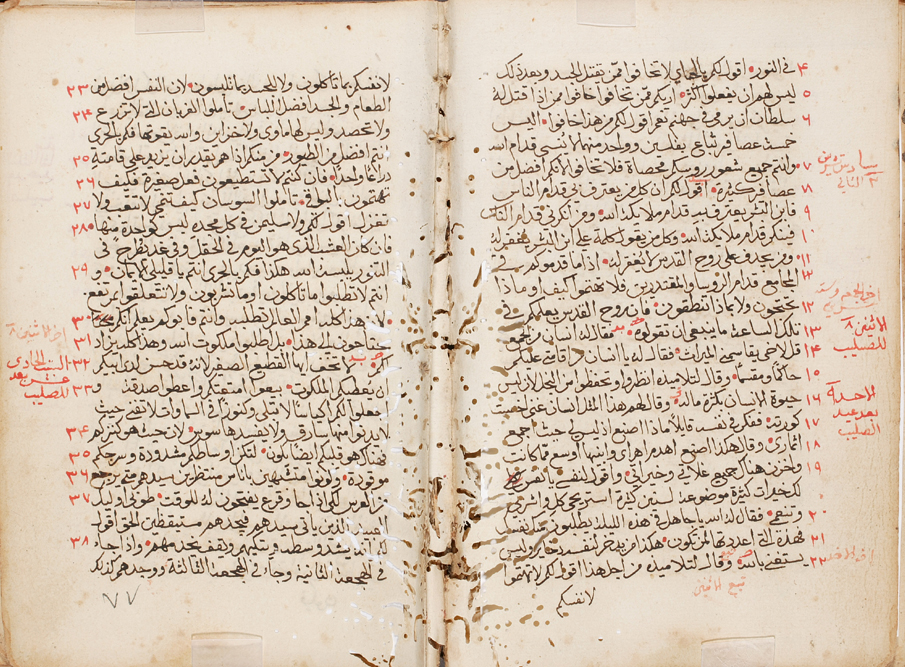 ٤ في النور اقول لكم يا احباي لا تخافوا ممن يقتل الجسد وبعد ذلك
٥ ليس لهم ان يفعلوا اكثر اريكم ممن تخافوا خافوا ممن اذا قتل له
٦ سلطان ان يرمي في جهنم نعم اقول لكم من هذا خافوا اليس
خمسة عصافير تباع بفلسين وواحد منها لا ينسى قدام الله
٧ وانتم جميع شعور روسكم محصاة فلا تخافوا لانكم افضل من
٨ عصافير كثيرة اقول لكم ان كل من يعترف بي قدام الناس
٩ فابن البشر يعترف به قدام ملايكة الله ومن انكرني قدام الناس
١٠ فينكر قدام ملايكة الله وكل من يقول كلمة على ابن البشر يغفر له
١١ ومن يجدف على روح القدس لا يغفر له اذا ما قدموكم في
المجامع قدام الروسا والمقتدرين فلا تهتموا كيف او ماذا
١٢ تحتجون ولا بماذا تنطقون فان روح القدس يعلمكم في
١٣ تلك الساعة ما ينبغي ان تقولوه فقال له انسان من الجمع
١٤ قل لاخي يقاسمني الميراث فقال له يا انسان من اقامني عليكم
١٥ حاكما ومقسما وقال لتلاميذه انظروا وتحفظوا من البخل لان ليس
١٦ حيوة الانسان بكثرة ماله وقال لهم هذا المثل انسان غني اخصبت
١٧ كورته ففكر في نفسه قايلا ماذا اصنع اذ ليس لي حيث اجمع
١٨ اثماري وقال هكذا اصنع اهدم اهراي وابنيها اوسع مما كانت
١٩ واخزن هناك جميع غلاتي وخيراتي واقول لنفسي يا نفسي
لك خيرات كثيرة موضوعة لسنين كثيرة استريحي كلي واشربي
٢٠ وتنعمي فقال له الله يا جاهل في هذه الليلة يطلبون منك نفسك
٢١ فهذه التي اعددتها لمن تكون هكذا من يدخر لنفسه ذخاير وليس
٢٢ يستغني بالله وقال لتلاميذه من اجل هذا اقول لكم لا تهتموا
لانفسكم
الاثنين ٨
للصليب
الاحد
بعد عيد
الصليب
٢٣ لانفسكم بما تاكلون ولا للجسد بما تلبسون لان النفس افضل من
٢٤ الطعام والجسد افضل من اللباس تاملوا الغربان التي لا تزرع
ولا تحصد وليس لها ماوى ولا خزاين والله يقوتها فكم بالحري
٢٥ انتم افضل من الطيور من منكم اذا هم يقدر ان يزيد على قامته
٢٦ ذراعا واحدا فان كنتم لا تستطيعون فعل صغيرة فكيف
٢٧ تهتمون بالبواقي تاملوا السوسان كيف تنمي لا تتعب ولا
٢٨ تغزل اقول لكم ولا سليمن في كل مجده لبس كواحدة منها
فان كان العشب الذي هو اليوم في الحقل وفي غد يطرح في
٢٩ التنور يلبسه الله هكذا فكم بالحري انتم يا قليلي الايمان و
انتم لا تطلبوا ما تاكلون او ما تشربون ولا تتعلقوا بما يرتفع
٣٠ لان هذا كله امم العالم تطلبه وانتم فابوكم يعلم انكم
٣١ محتاجون الى هذا بل اطلبوا ملكوت الله وهذا كله يزاد
٣٢ لكم لا تخف ايها القطيع الصغير لانه قد حسن لدى ابيكم
٣٣ ان يعطيكم الملكوت بيعوا امتعتكم واعطوا صدقة و
اجعلوا لكم اكياسا لا تبلى وكنوزا في السماوات لا تفنى حيث
٣٤ لا يدنوا منها سارق ولا يفسدها سوس لان حيث هو كنزكم
٣٥ فهناك هو قلبكم ايضا يكون لتكن اوساطكم مشدودة وسرجكم
٣٦ موقودة وكونوا متشبهين باناس منتظرين سيدهم متى يرجع
٣٧ من العرس لكي اذا جا وقرع يفتحون له للوقت طوبى لاوليك
العبيد الذين ياتي سيدهم فيجدهم مستيقظين الحق اقول
٣٨ لكم انه يشد وسطه ويتكيهم ويقف يخدمهم واذا جا
في الهجعة الثانية وجا في الهجعة الثالثة ووجدهم كذلك
البيت الحادي
عشر بعد
للصليب
٧٧